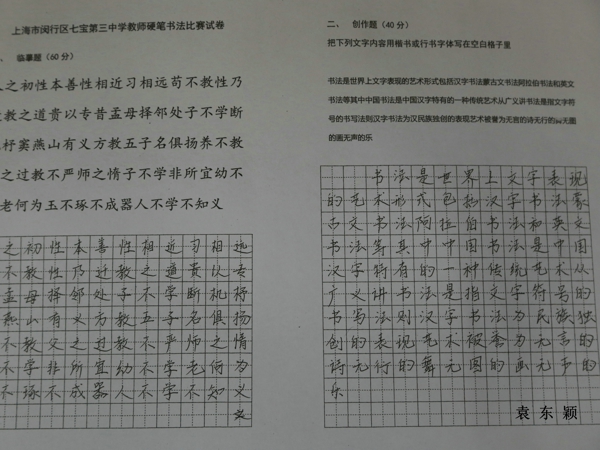 上海市闵行区七宝第三中学教师硬笔书法比赛试卷
临摹题（60分）
之初性本善性相近习相远苟不教性乃
教之道贵以专昔孟母择邻处子不学断
杼窦燕山有义方教五子名俱扬养不教
之过教不严师之惰子不学非所宜幼不
老何为玉不琢不成器人不学不知义
之初性本善性相近习相远
不教性乃迁教之道贵以专
孟母择邻处子不学断机杼
燕山有义方教五子名俱扬
不教父之过教不严师之惰
不学非所宜幼不学老何为
不琢不成器人不学不知义
义
二、 创作题（40分）
把下列文字内容用楷书或行书字体写在空白格子里
书法是世界上文字表现的艺术形式包括汉字书法蒙古文书法阿拉伯书法和英文
书法等其中中国书法是中国汉字特有的一种传统艺术从广义讲书法是指文字符
号的书写法则汉字书法为汉民族独创的表现艺术被誉为无言的诗无行的舞无图
的画无声的乐
书法是世界上文字表现
的艺术形式包括汉字书法蒙
古文书法阿拉伯书法和英文
书法等其中中国书法是中国
汉字特有的一种传统艺术从
广义讲书法是指文字符号的
书写法则汉字书法为民族独
创的表现艺术被誉为无言的
诗无行的舞无图的画无声的
乐
袁东颖